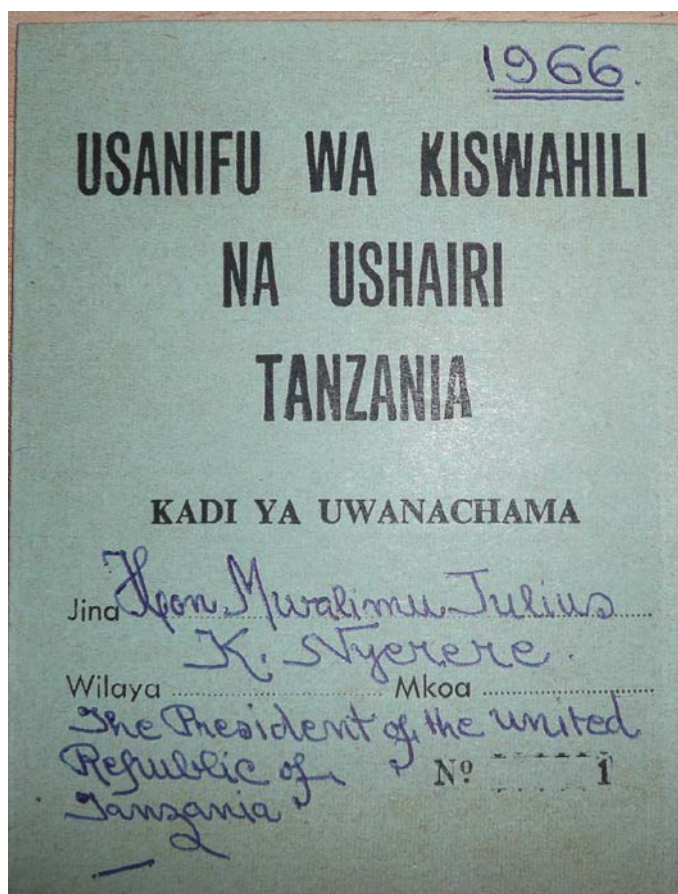 1966.
USANIFU WA KISWAHILI
NA USHAIRI
TANZANIA
KADI YA UWANACHAMA
Jina Hon. Mwalimu Julius
K. Nyerere.
Wilaya Mkoa
The President of the United
Republic of
Tanzania
Nº 1